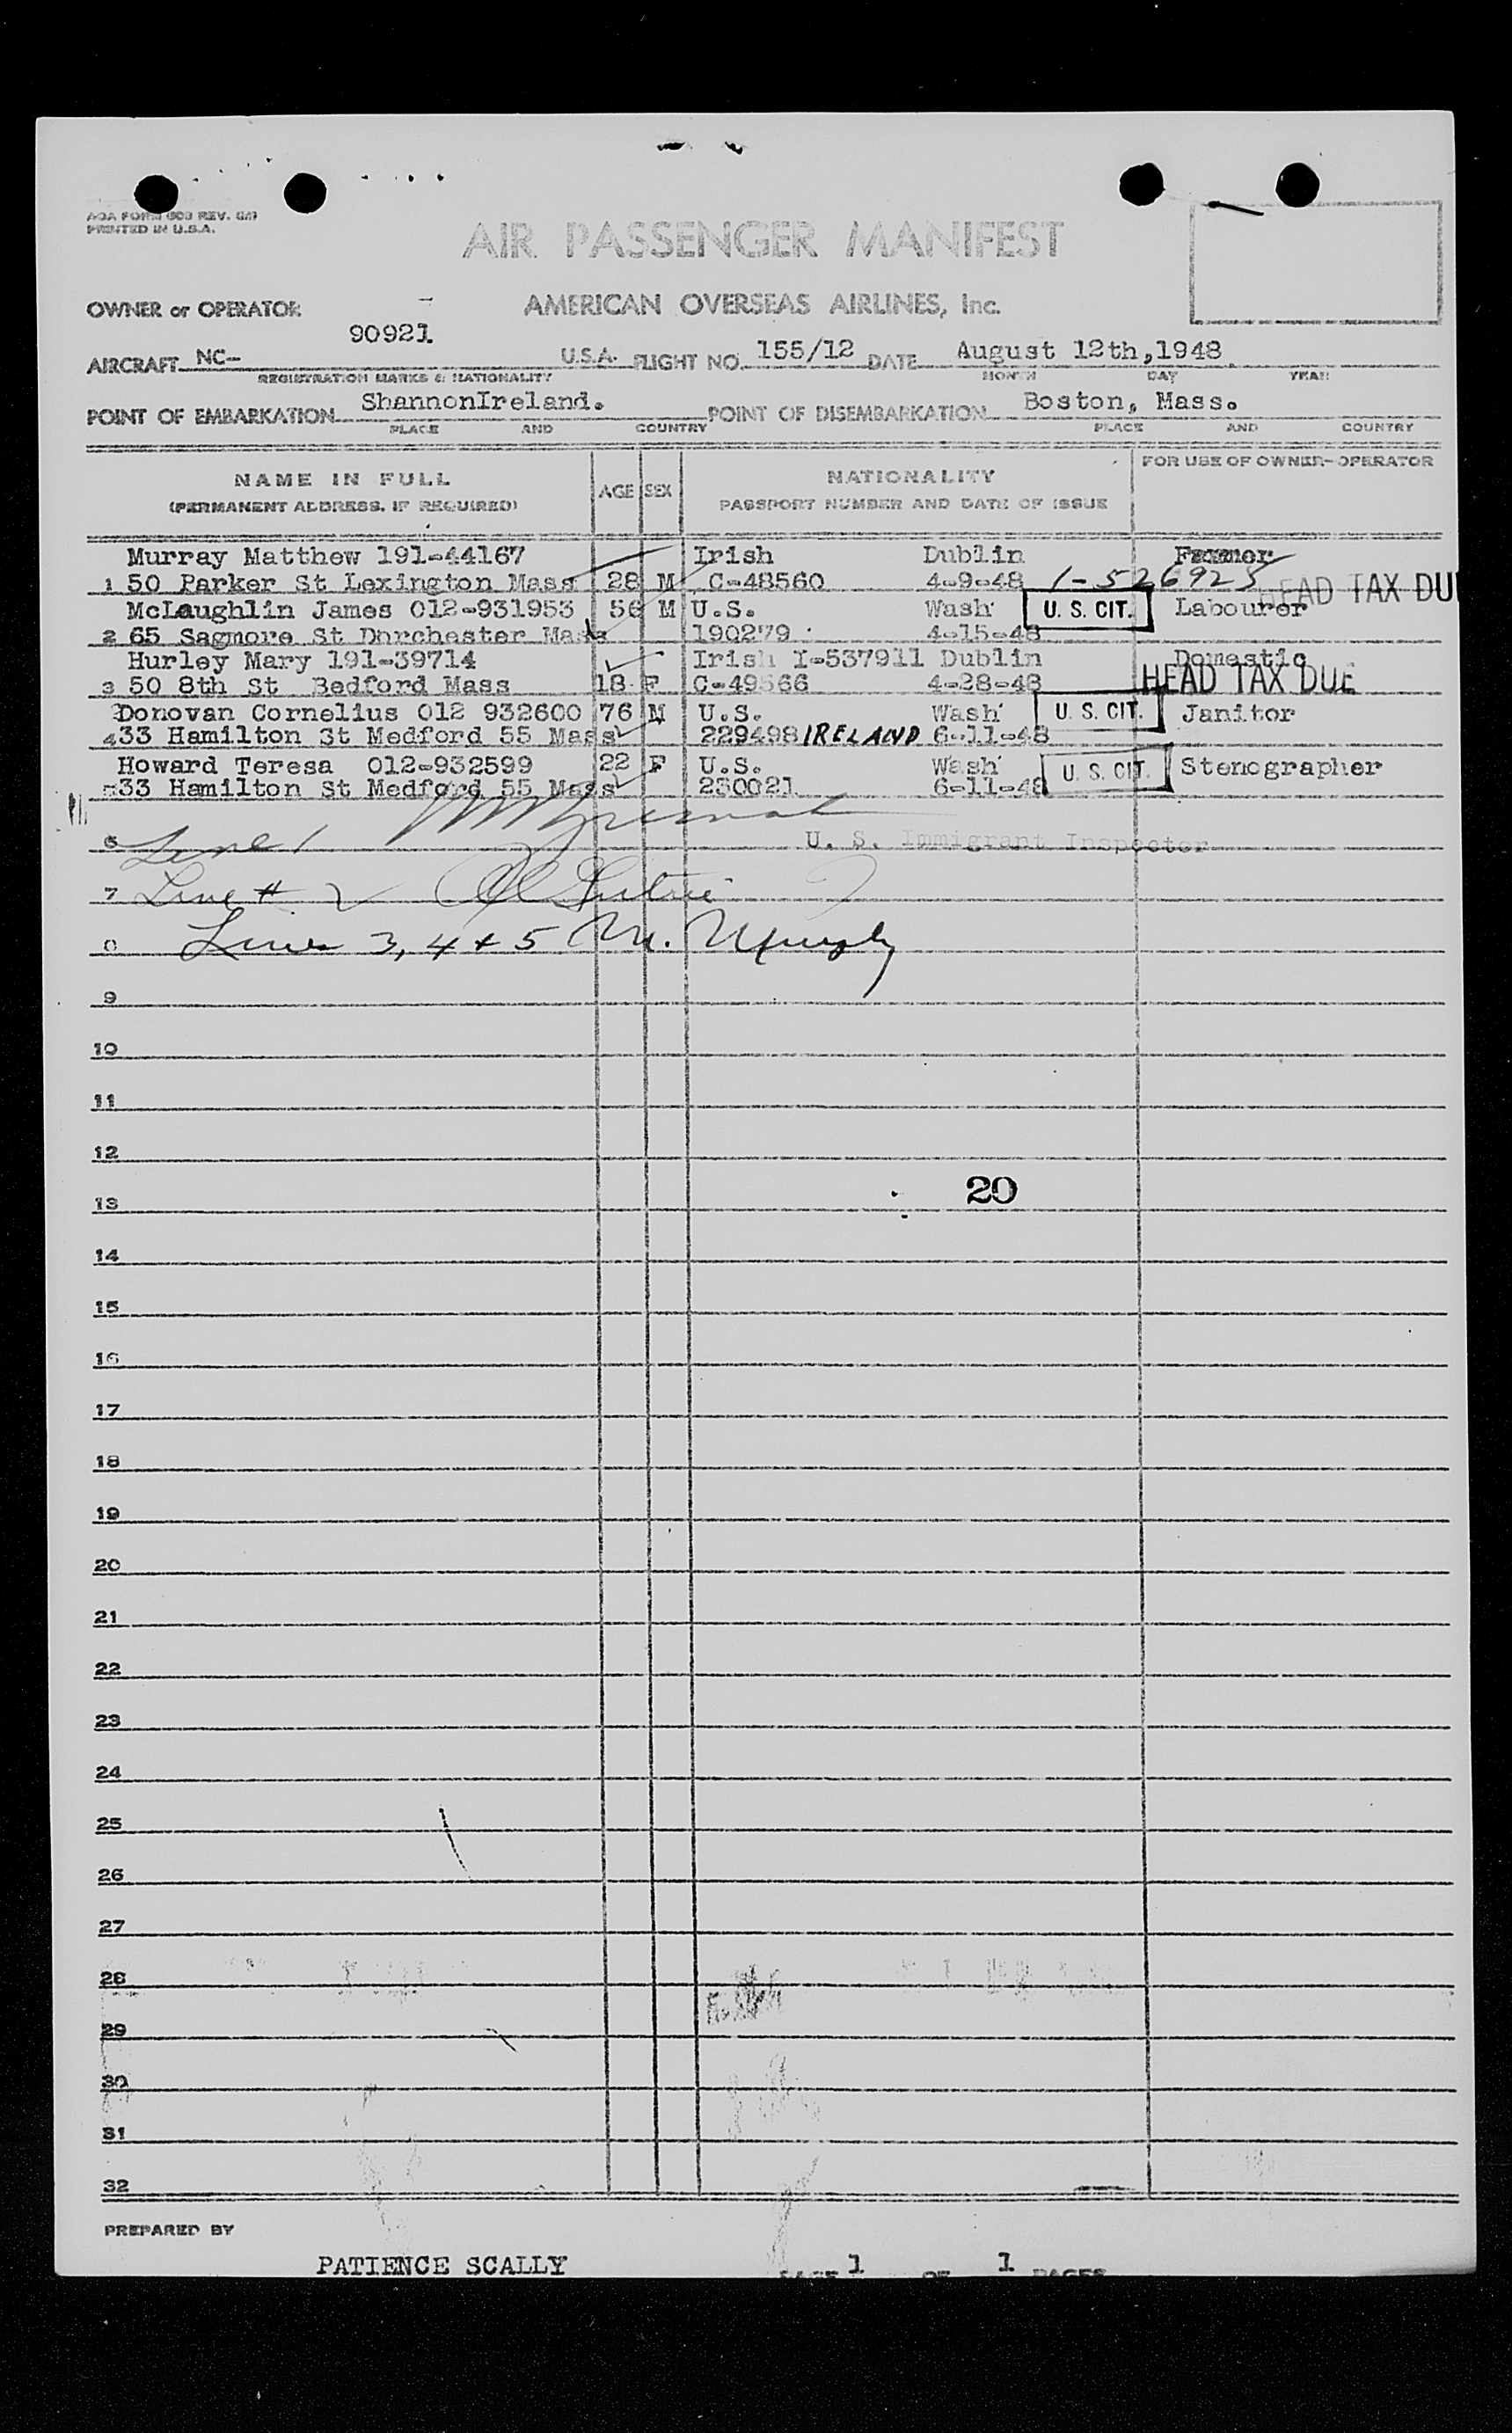 AOA FORM 603 REV.
PRINTED IN U.S.A.
AIR PASSENGER MANIFEST
OWNER or OPERATOR AMERICAN OVERSEAS AIRLINES, Inc.
AIRCRAFT NC- 90921 U.S.A. FLIGHT NO. 155/12 DATE August 12th,1948
REGISTRATION MARKS & NATIONALITY MONTH DAY YEAR
POINT OF EMBARKATION ShannonIreland. POINT OF DISEMBARKATION Boston, Mass.
PLACE AND COUNTRY PLACE AND COUNTRY
NAME IN FULL AGE SEX NATIONALITY FOR USE OF OWNER-OPERATOR
(PERMANENT ADDRESS, IF REQUIRED) PASSPORT NUMBER AND DATE OF ISSUE
Murray Matthew 191-44167 Irish Dublin Farmer
1 50 Parker St Lexington Mass 28 M C-48560 4-9-48 1-526925 HEAD TAX DUE
McLaughlin James 012-931953 56 M U.S. Wash U. S. CIT. Labourer
2 65 Sagmore St Dorchester Mass 190279 4-15-48
Hurley Mary 191-39714 Irish I-537911 Dublin Domestic
3 50 8th St Bedford Mass 18 F C-49566 4-28-48 HEAD TAX DUE
Donovan Cornelius 012 932600 76 M U.S. Wash U. S. CIT. Janitor
4 33 Hamilton St Medford 55 Mass 229498 IRELAND 6-11-48
Howard Teresa 012-932599 22 F U.S. Wash U. S. CIT. Stenographer
5 33 Hamilton St Medford 55 Mass 230021 6-11-48
6 Line 1 U. S. Immigrant Inspector
7 Line # 2
8 Lines 3, 4 + 5 M. Murphy
9
10
11
12
20
13
14
15
16
17
18
19
20
21
22
23
24
25
26
27
28
29
30
31
32
PREPARED BY
PATIENCE SCALLY PAGE 1 OF 1 PAGES